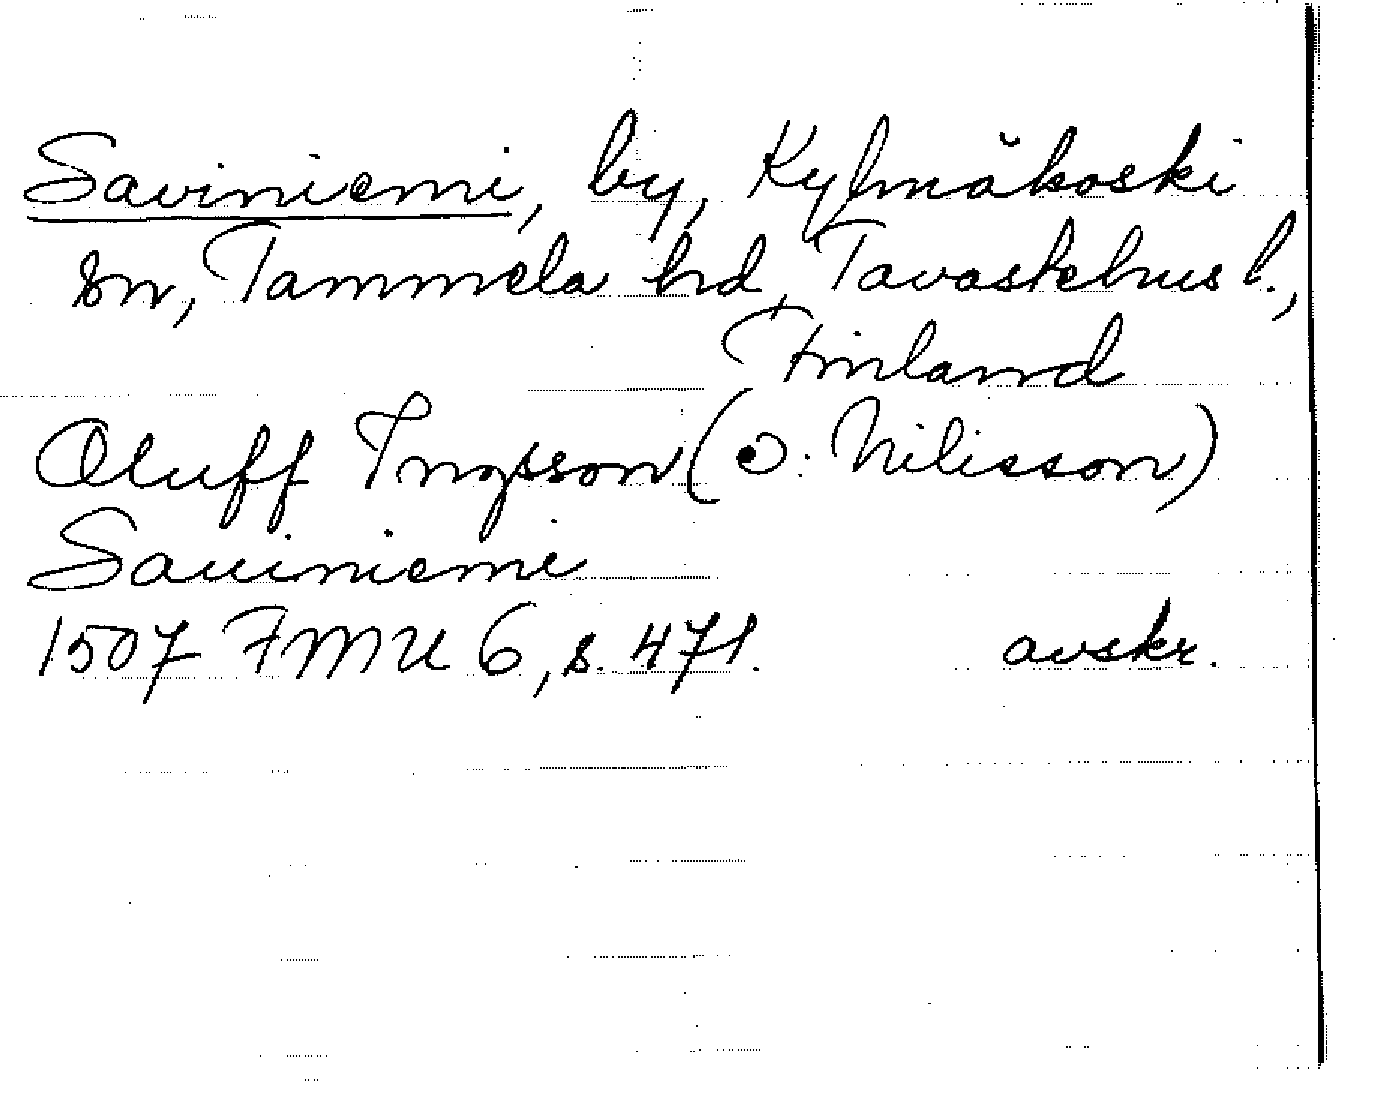 Saviniemi, by, Kylmäkoski
sn, Tammela hd, Tavastehus l.,
Finland
Oluff Ingesson (O. Nilisson)
Sauiniemi
1507 FMU 6, s. 471. avskr.